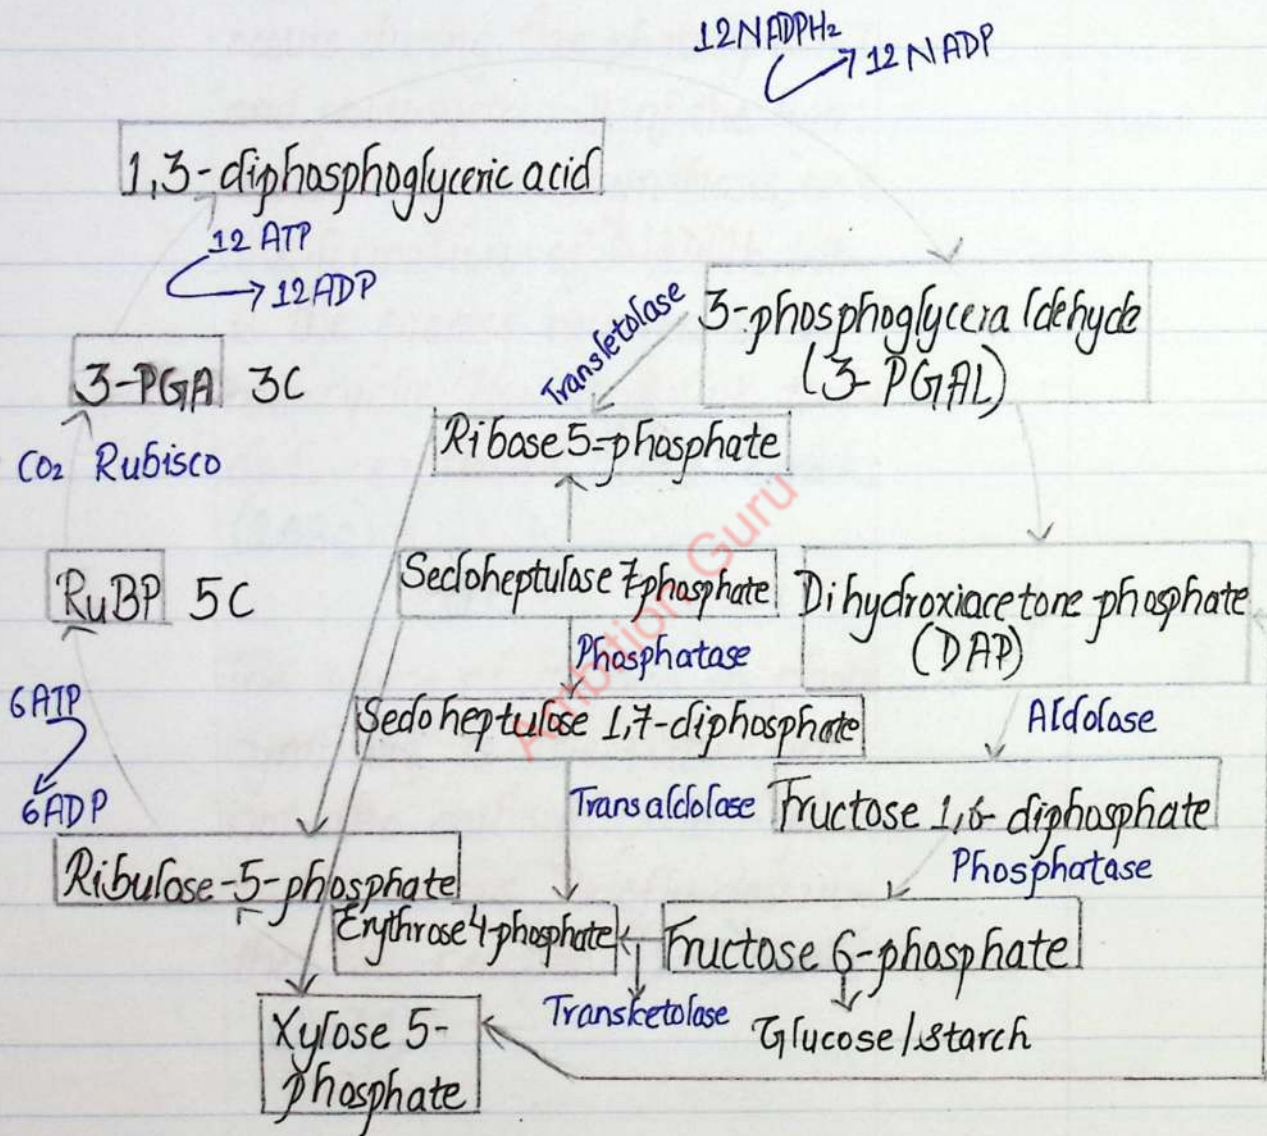 12NADPH₂
12 NADP
1,3-diphosphoglyceric acid
12 ATP
12ADP
3-phosphoglyceraldehyde
(3-PGAL)
Transletolase
3-PGA 3C
Ribose 5-phosphate
CO₂ Rubisco
RuBP 5C
Sedoheptulase 7-phosphate
Dihydroxiacetone phosphate
(DAP)
Phosphatase
6ATP
6ADP
Sedoheptulose 1,7-diphosphate
Aldolase
Transaldolase
Fructose 1,6-diphosphate
Phosphatase
Ribulose-5-phosphate
Erythrose 4-phosphate
Fructose 6-phosphate
Transketolase
Glucose/starch
Xylose 5-
phosphate
Ambition Guru